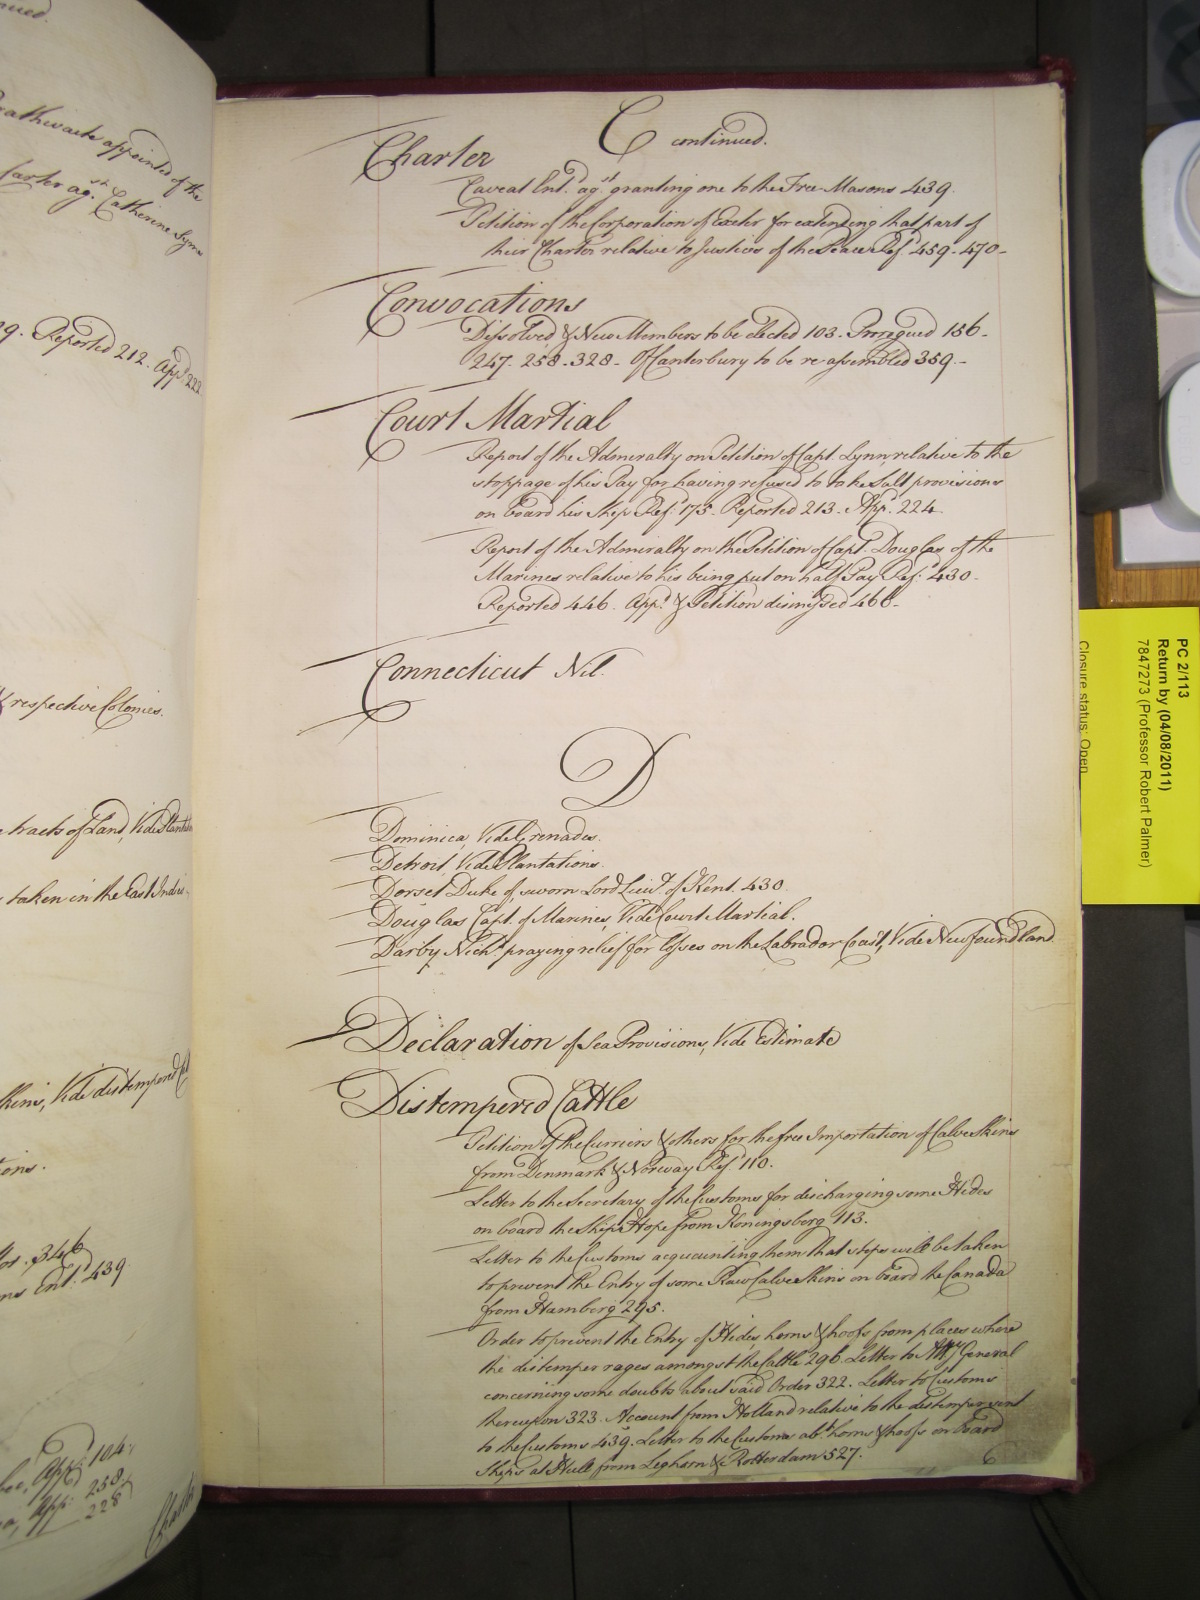 C continued.
Charter
Caveat Ent.d ag.st granting one to the Free-Masons 439.
Petition of the Corporation of Exeter for extending that part of
their Charter relative to Justices of the Peace Ref.d 459. 470-
Convocations
Dissolved & New Members to be elected 103. Prorogued 156-
247. 258. 328- Of Canterbury to be re-assembled 359-
Court Martial
Report of the Admiralty on Petition of Capt. Lynn, relative to the
stoppage of his Pay for having refused to take Salt provisions
on board his Ship Ref.d 175. Reported 213. App.d 224.
Report of the Admiralty on the Petition of Capt. Douglas of the
Marines relative to his being put on half Pay Ref.d 430.
Reported 446. App.d & Petition dismissed 466-
Connecticut Nil.
D
Dominica, Vide Grenades.
Detroit, Vide Plantations.
Dorset Duke of, sworn Lord Lieut. of Kent. 430.
Douglas Capt. of Marines, Vide Court Martial.
Darby Nich.s praying relief for losses on the Labrador Coast, Vide Newfoundland
Declaration of Sea Provisions, Vide Estimate
Distempered Cattle
Petition of the Curriers & others for the free Importation of Calve Skins
from Denmark & Norway Ref.d 110.
Letter to the Secretary of the Customs for discharging some Hides
on board the Ship Hope from Koningsberg 113.
Letter to the Customs acquainting them that steps will be taken
to prevent the Entry of some Raw Calve Skins on board the Canada
from Hamberg 295.
Order to prevent the Entry of Hides, horns & hoofs from places where
the distemper rages amongst the Cattle 296. Letter to Att.y General
concerning some doubts about said Order 322. Letter to Customs
thereupon 323. Account from Holland relative to the distemper sent
to the Customs 439. Letter to the Customs ab.t horns & hoofs on board
Ships at Hull from Leghorn & Rotterdam 527.
6
appointed of the
Carter ag.st Catherine
Reported 212. App.d 222
respective Colonies.
tracts of Land, Vide
taken in the East Indies-
Vide distempered
346
Ent.d 439
App.d 104.
App.d 258
App.d 228
PC 2/113
Return by (04/08/2011)
7847273 (Professor Robert Palmer)
Closure status: Open